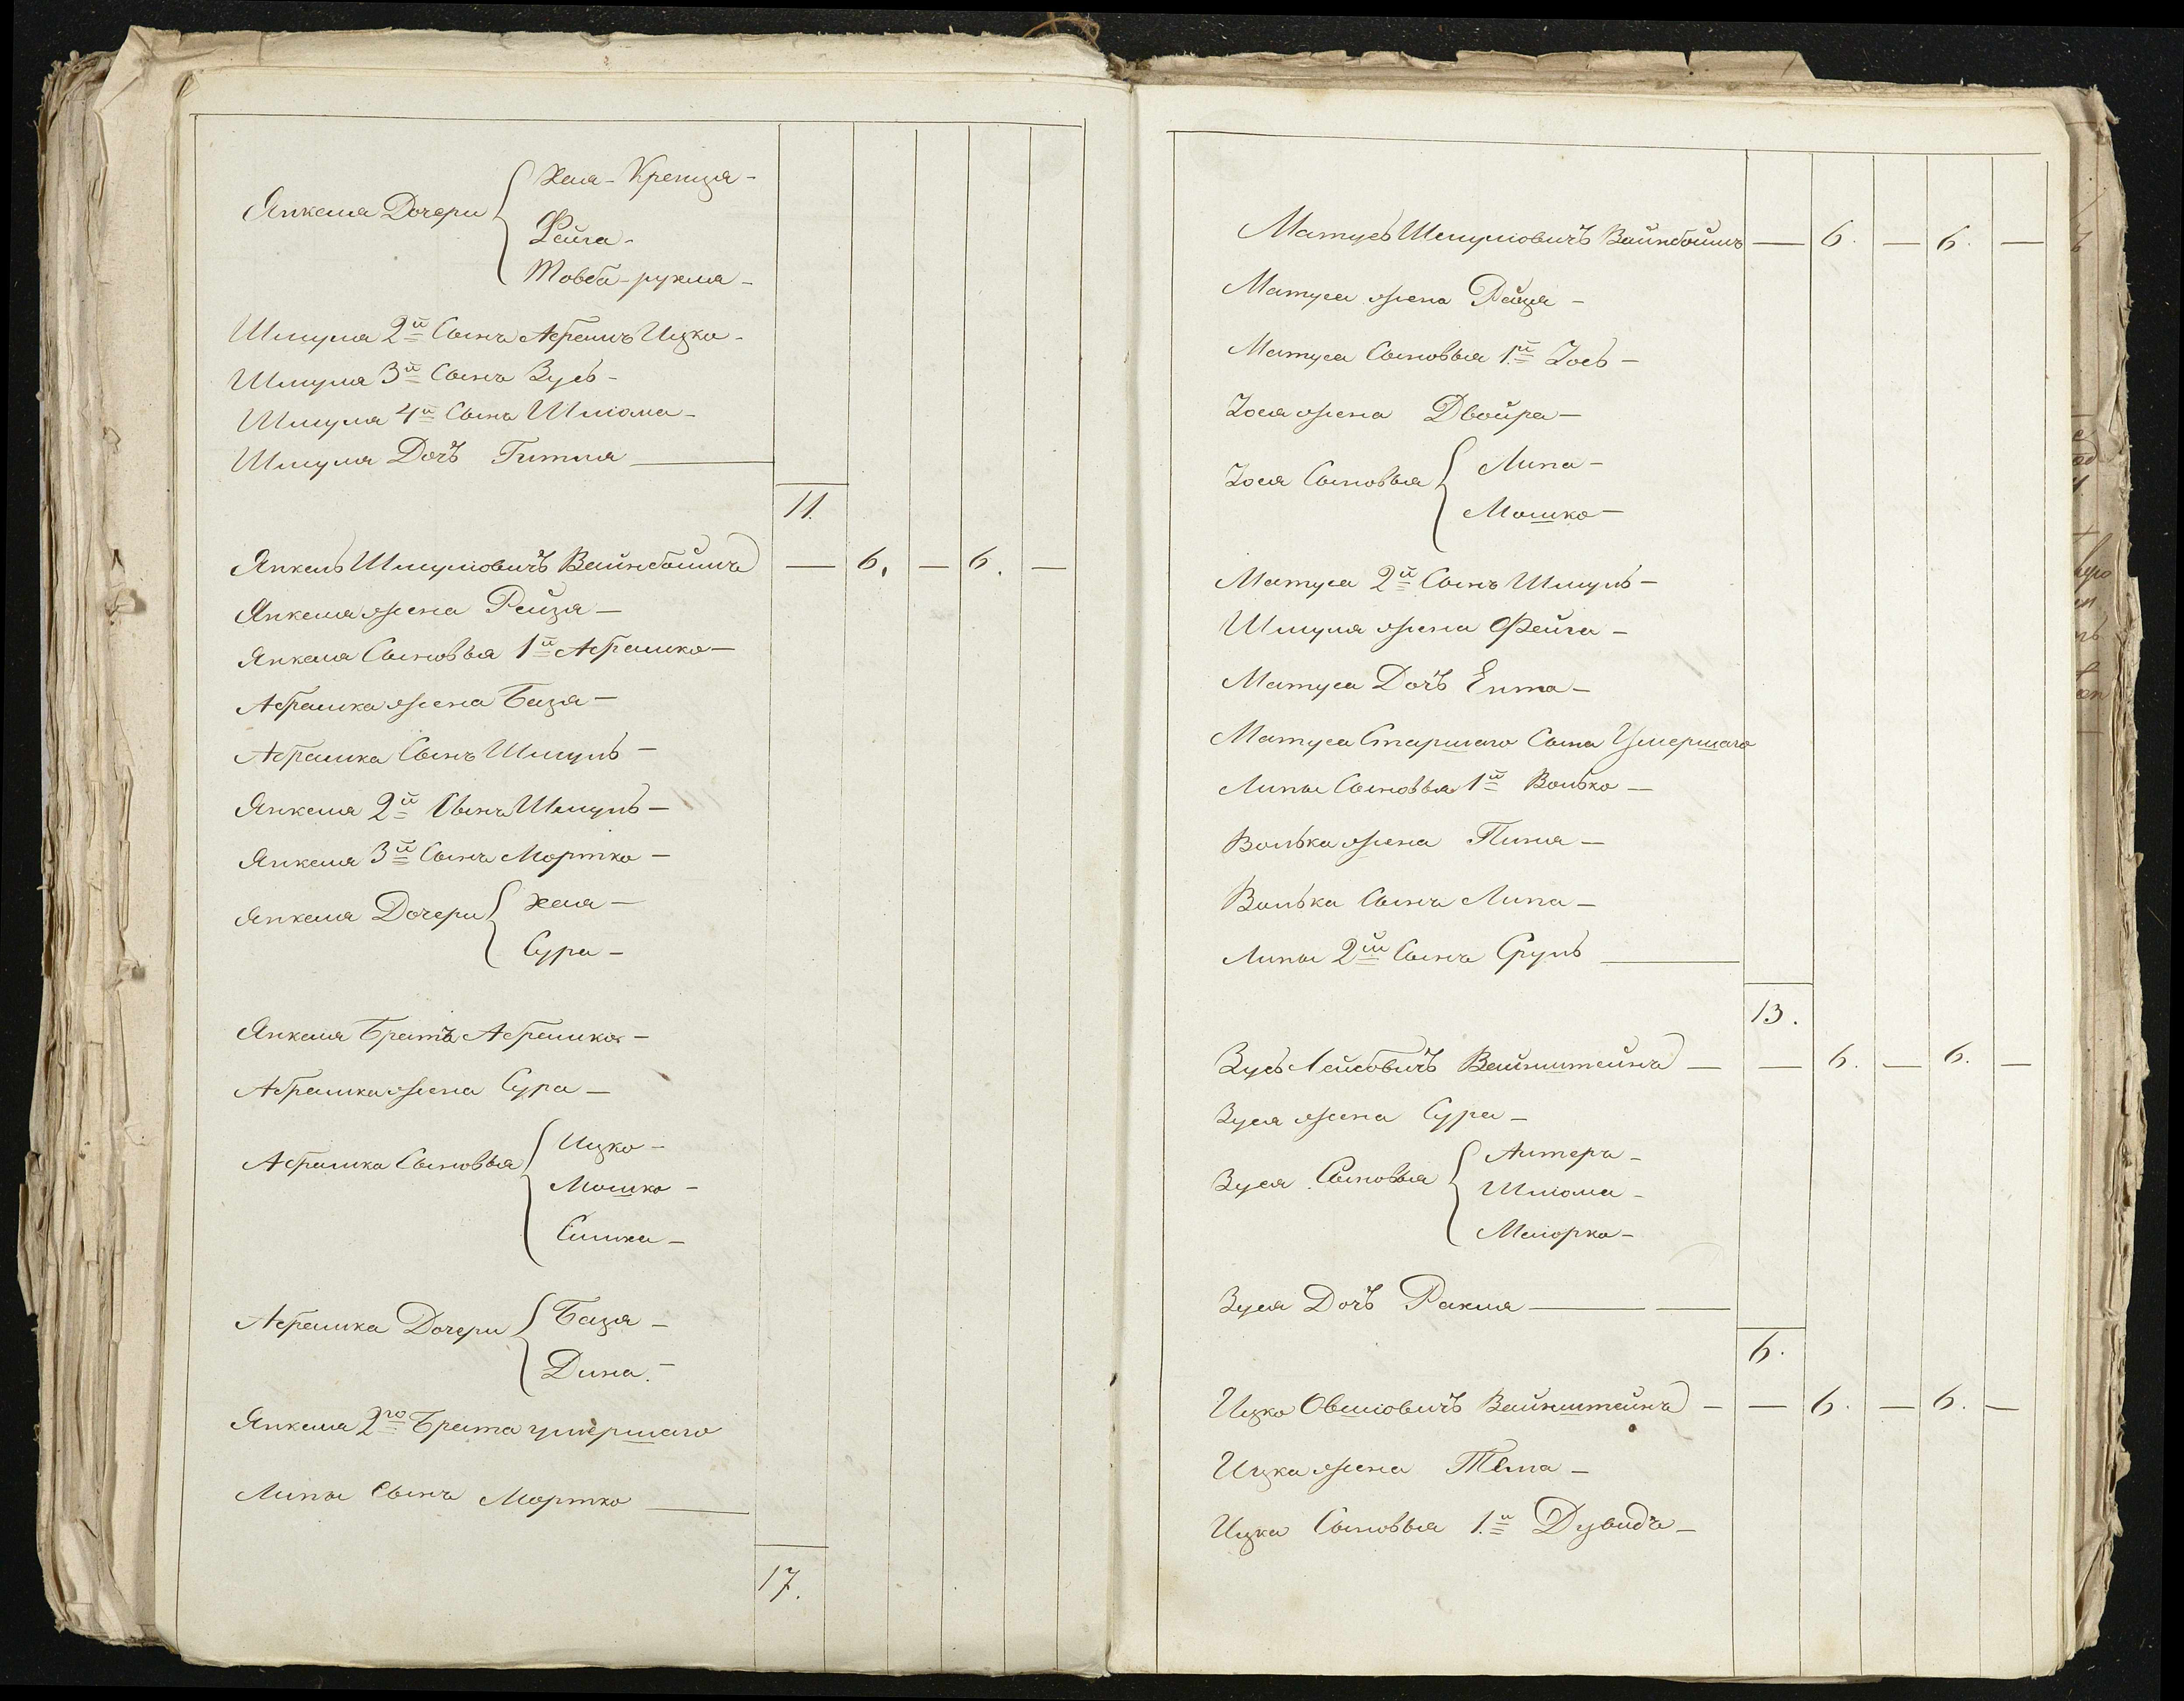 Хая-Крейця-
Янкеля Дочери
Фейга-
Товба-рухля-
Шмуля 2й Сынъ Абрамъ Ицко-
Шмуля 3й Сынъ Зусь-
Шмуля 4й Сынъ Шліома-
Шмуля Дочь Гитля
11.
Янкель Шмуліовичъ Вайнбоймъ — 6. — 6. —
Янкеля жена Рейзя-
Янкеля Сыновья 1й Абрашко-
Абрашка жена Бася-
Абрашка Сынъ Шмуль-
Янкеля 2й Сынъ Шмуль-
Янкеля 3й Сынъ Мортко-
Янкеля Дочери Хая-
Сура-
Янкеля Братъ Абрашко-
Абрашка жена Сура-
Ицко-
Абрашка Сыновья
Мошко-
Симха-
Абрашка Дочери Бася-
Дина.-
Янкеля 2го Брата умершаго
Липы Сынъ Мортко
17.
Матусь Шмуліовичъ Вайнбоймъ — 6. — 6. —
Матуса жена Рейзя-
Матуса Сыновья 1.й Іось-
Іося жена Двойра-
Іося Сыновья Липа-
Мошко-
Матуса 2й Сынъ Шмуль-
Шмуля жена Фейга-
Матуса Дочь Ента-
Матуса Старшаго Сына Умершаго
Липы Сыновья 1й Волько-
Волька жена Пиня-
Волька Сынъ Липа-
Липы 2й Сынъ Сруль
13.
Зусь Лейбовичъ Вайнштейнъ — — 6. — 6. —
Зуся жена Сура-
Алтеръ-
Зуся Сыновья
Шліома-
Маіорко-
Зуся Дочь Рахля
6.
Ицко Овшіовичъ Вайнштейнъ — — 6. — 6. —
Ицка жена Тема-
Ицка Сыновья 1.й Дувидъ-